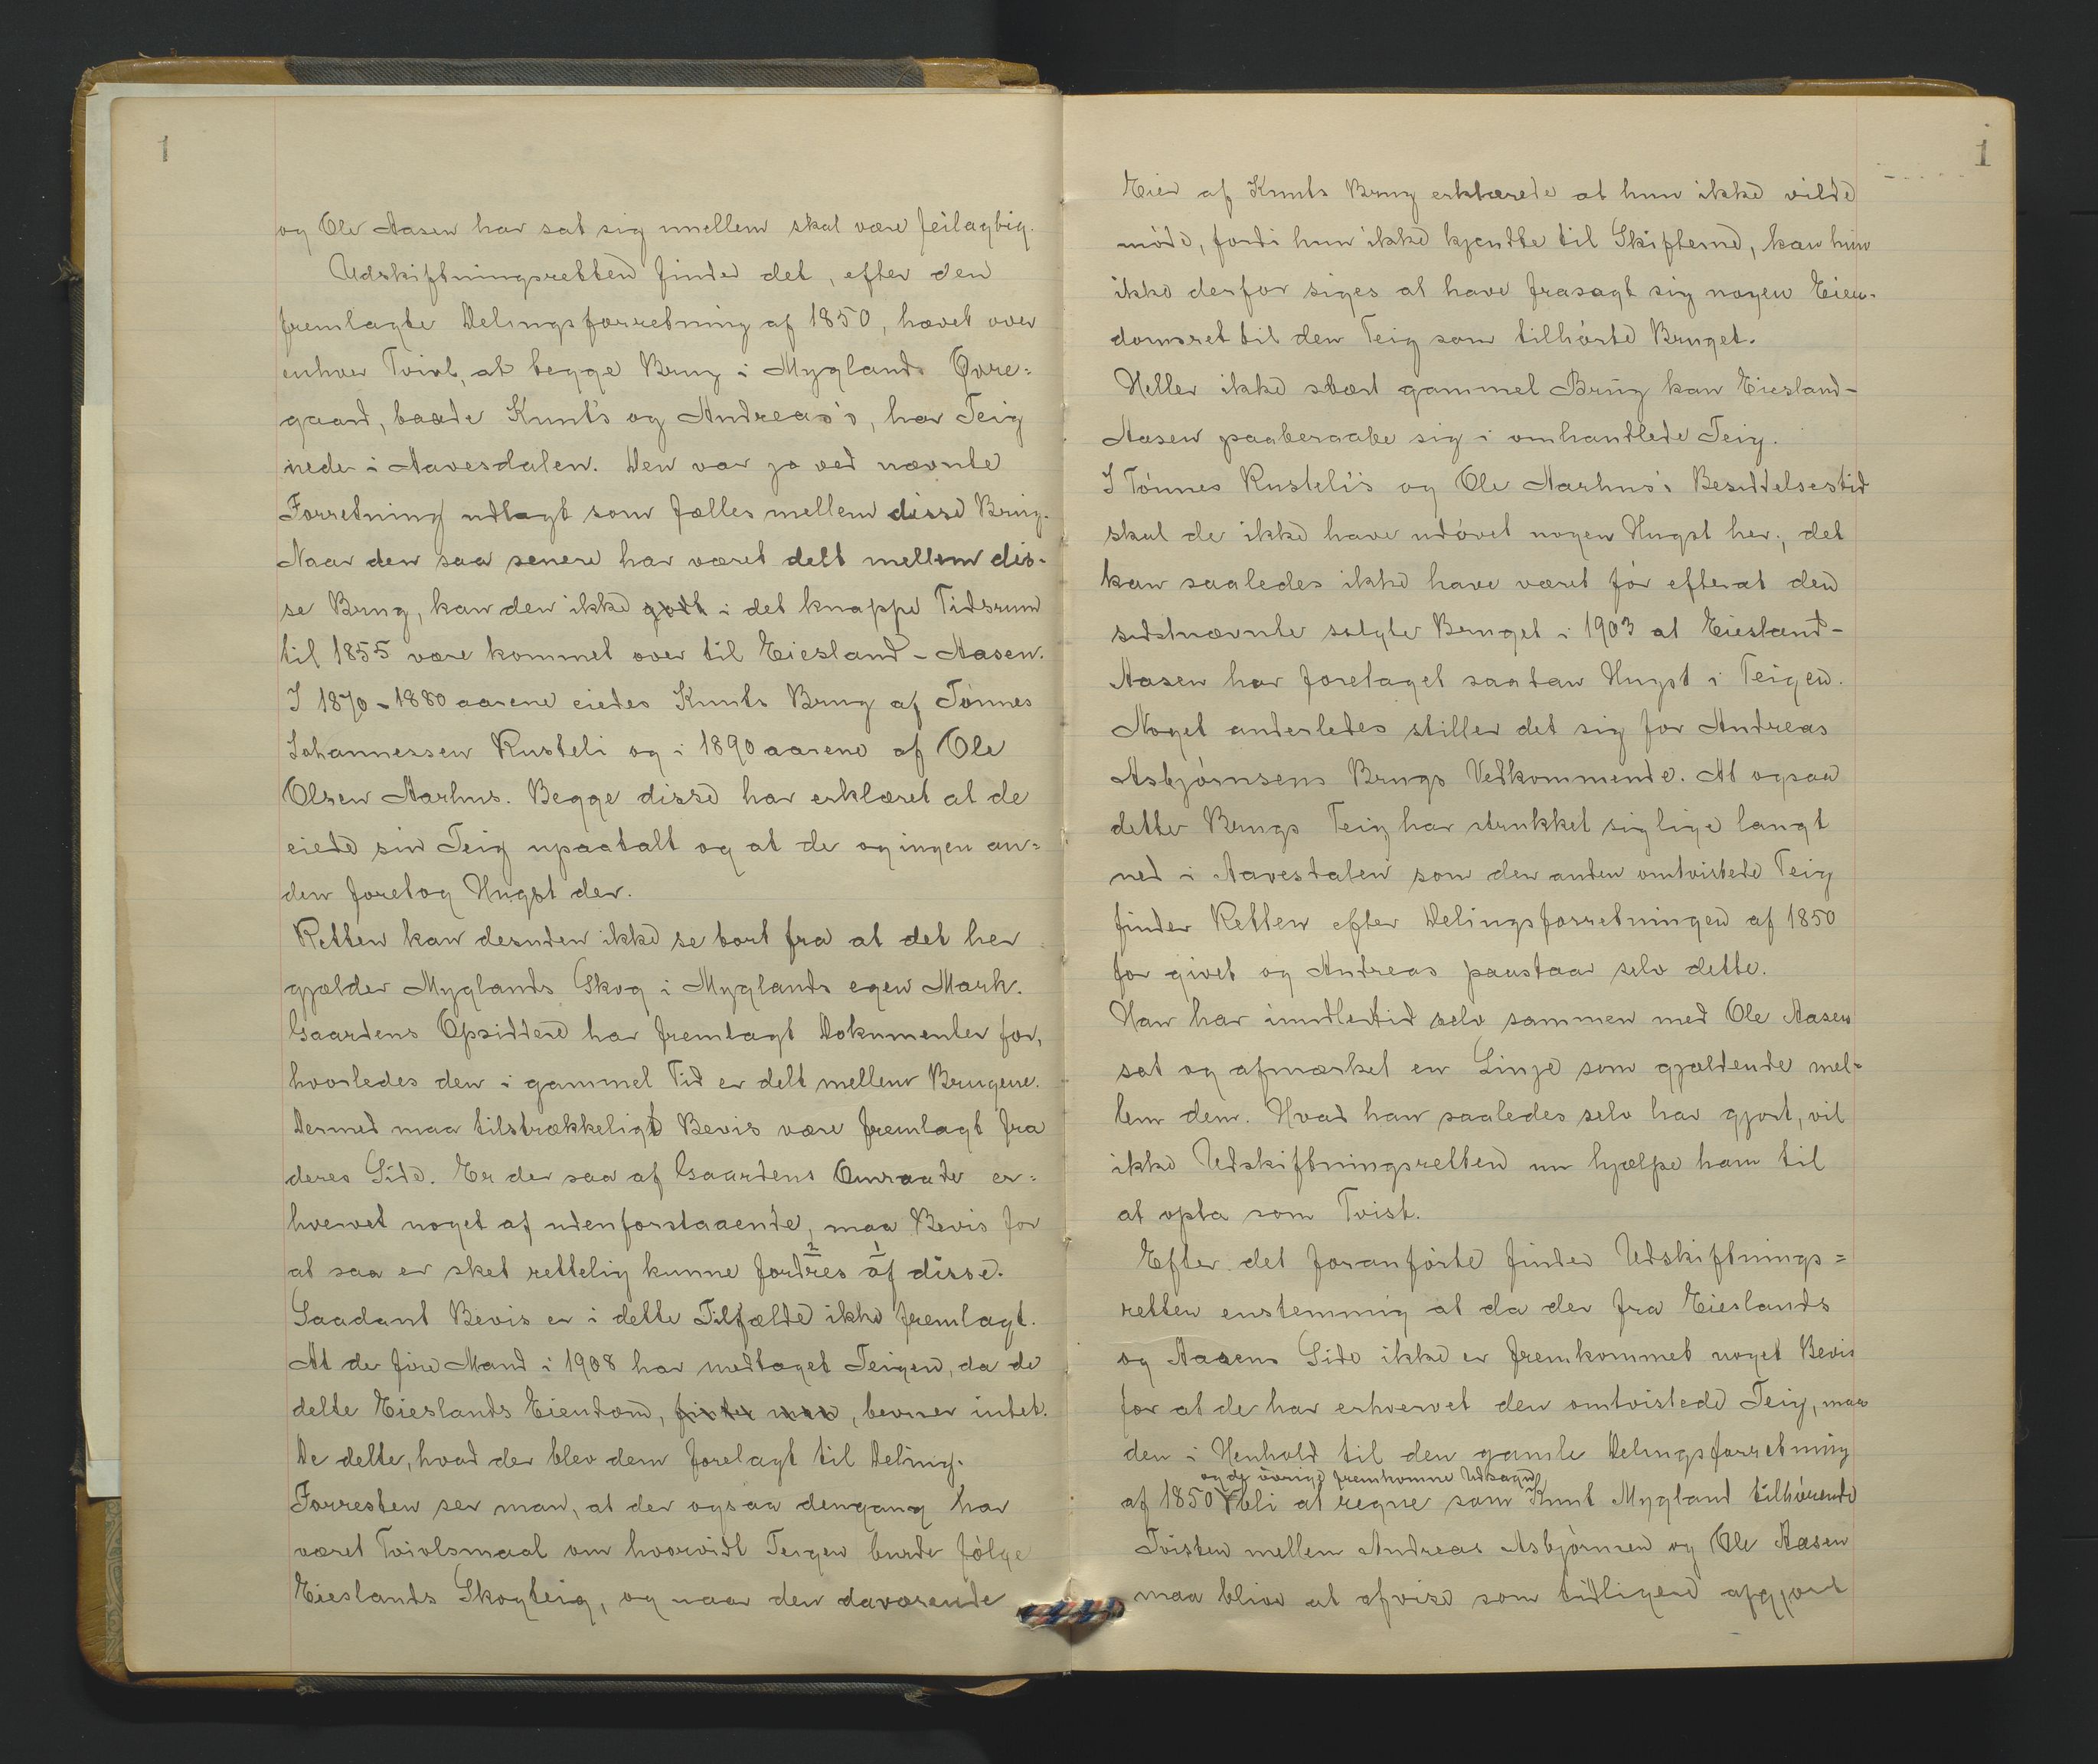 1
og Ole Aasen har sat sig imellem skal være feilagtig.
Udskiftningsretten finder det, efter den
fremlagte Delingsforretning af 1850, hævet over
enhver Tvivl, at begge Brug i Myglands Øvre=
gaard, baade Knuts og Andreas's, har Teig
nede i Aavesdalen. Den var jo ved nævnte
Forretning udlagt som fælles mellem disse Brug.
Naar den saa senere har været delt mellem dis-
se Brug, kan den ikke godt i det knappe Tidsrum
til 1855 være kommet over til Eiesland-Aasen.
I 1870-1880 aarene eiedes Knuts Brug af Tønnes
Johannessen Rusteli og i 1890 aarene af Ole
Olsen Aarhus. Begge disse har erklæret at de
eiede sin Teig upaatalt og at de og ingen an=
den foretog Hugst der.
Retten kan desuden ikke se bort fra at det her
gjælder Myglands Skog i Myglands egen Mark.
Gaardens Opsiddere har fremlagt Dokumenter for,
hvorledes den i gammel Tid er delt mellem Brugene.
Dermed maa tilstrækkeligt Bevis være fremlagt fra
deres Side. Er der saa af Gaardens Omraade er=
hvervet noget af udenforstaaende, maa Bevis for
2 1
at saa er sket rettelig kunne fordres af disse.
Saadant Bevis er i dette Tilfælde ikke fremlagt.
At de fire Mand i 1908 har medtaget Teigen, da de
delte Eieslands Eiendom, finder man, beviser intet.
De delte, hvad der blev dem forelagt til Deling.
Forresten ser man, at der ogsaa dengang har
været Tvivlsmaal om hvorvidt Teigen burde følge
Eieslands Skogteig, og naar den daværende
1
Eier af Knuts Brug erklærede at hun ikke vilde
møde, fordi hun ikke kjendte til Skifterne, kan hun
ikke derfor siges at have frasagt sig nogen Eien-
domsret til den Teig som tilhørte Bruget.
Heller ikke svært gammel Brug kan Eiesland-
Aasen paaberaabe sig i omhandlede Teig.
I Tønnes Rusteli's og Ole Aarhus's Besiddelsestid
skal de ikke have udøvet nogen Hugst her; det
kan saaledes ikke have været før efterat den
sidstnævnte solgte Bruget i 1903 at Eiesland-
Aasen har foretaget saadan Hugst i Teigen.
Noget anderledes stiller det sig for Andreas
Asbjørnsens Brugs Vedkommende. At ogsaa
dette Brugs Teig har strukket sig lige langt
ned i Aavesdalen som den anden omtvistede Teig
finder Retten efter Delingsforretningen af 1850
for givet og Andreas paastaar selv dette.
Han har imidlertid selv sammen med Ole Aasen
sat og afmærket en Linje som gjældende mel-
lem dem. Hvad han saaledes selv har gjort, vil
ikke Udskiftningsretten nu hjælpe ham til
at opta som Tvist.
Efter det foranførte finder Udskiftnings=
retten enstemmig at da der fra Eieslands
og Aasens Side ikke er fremkommet noget Bevis
for at de har erhvervet den omtvistede Teig, maa
den i Henhold til den gamle Delingsforretning
og de øvrige fremkomne Udsagn
af 1850 bli at regne som Knut Mygland tilhørende
Tvisten mellem Andreas Asbjørnsen og Ole Aasen
maa blive at afvise som tidligere afgjort